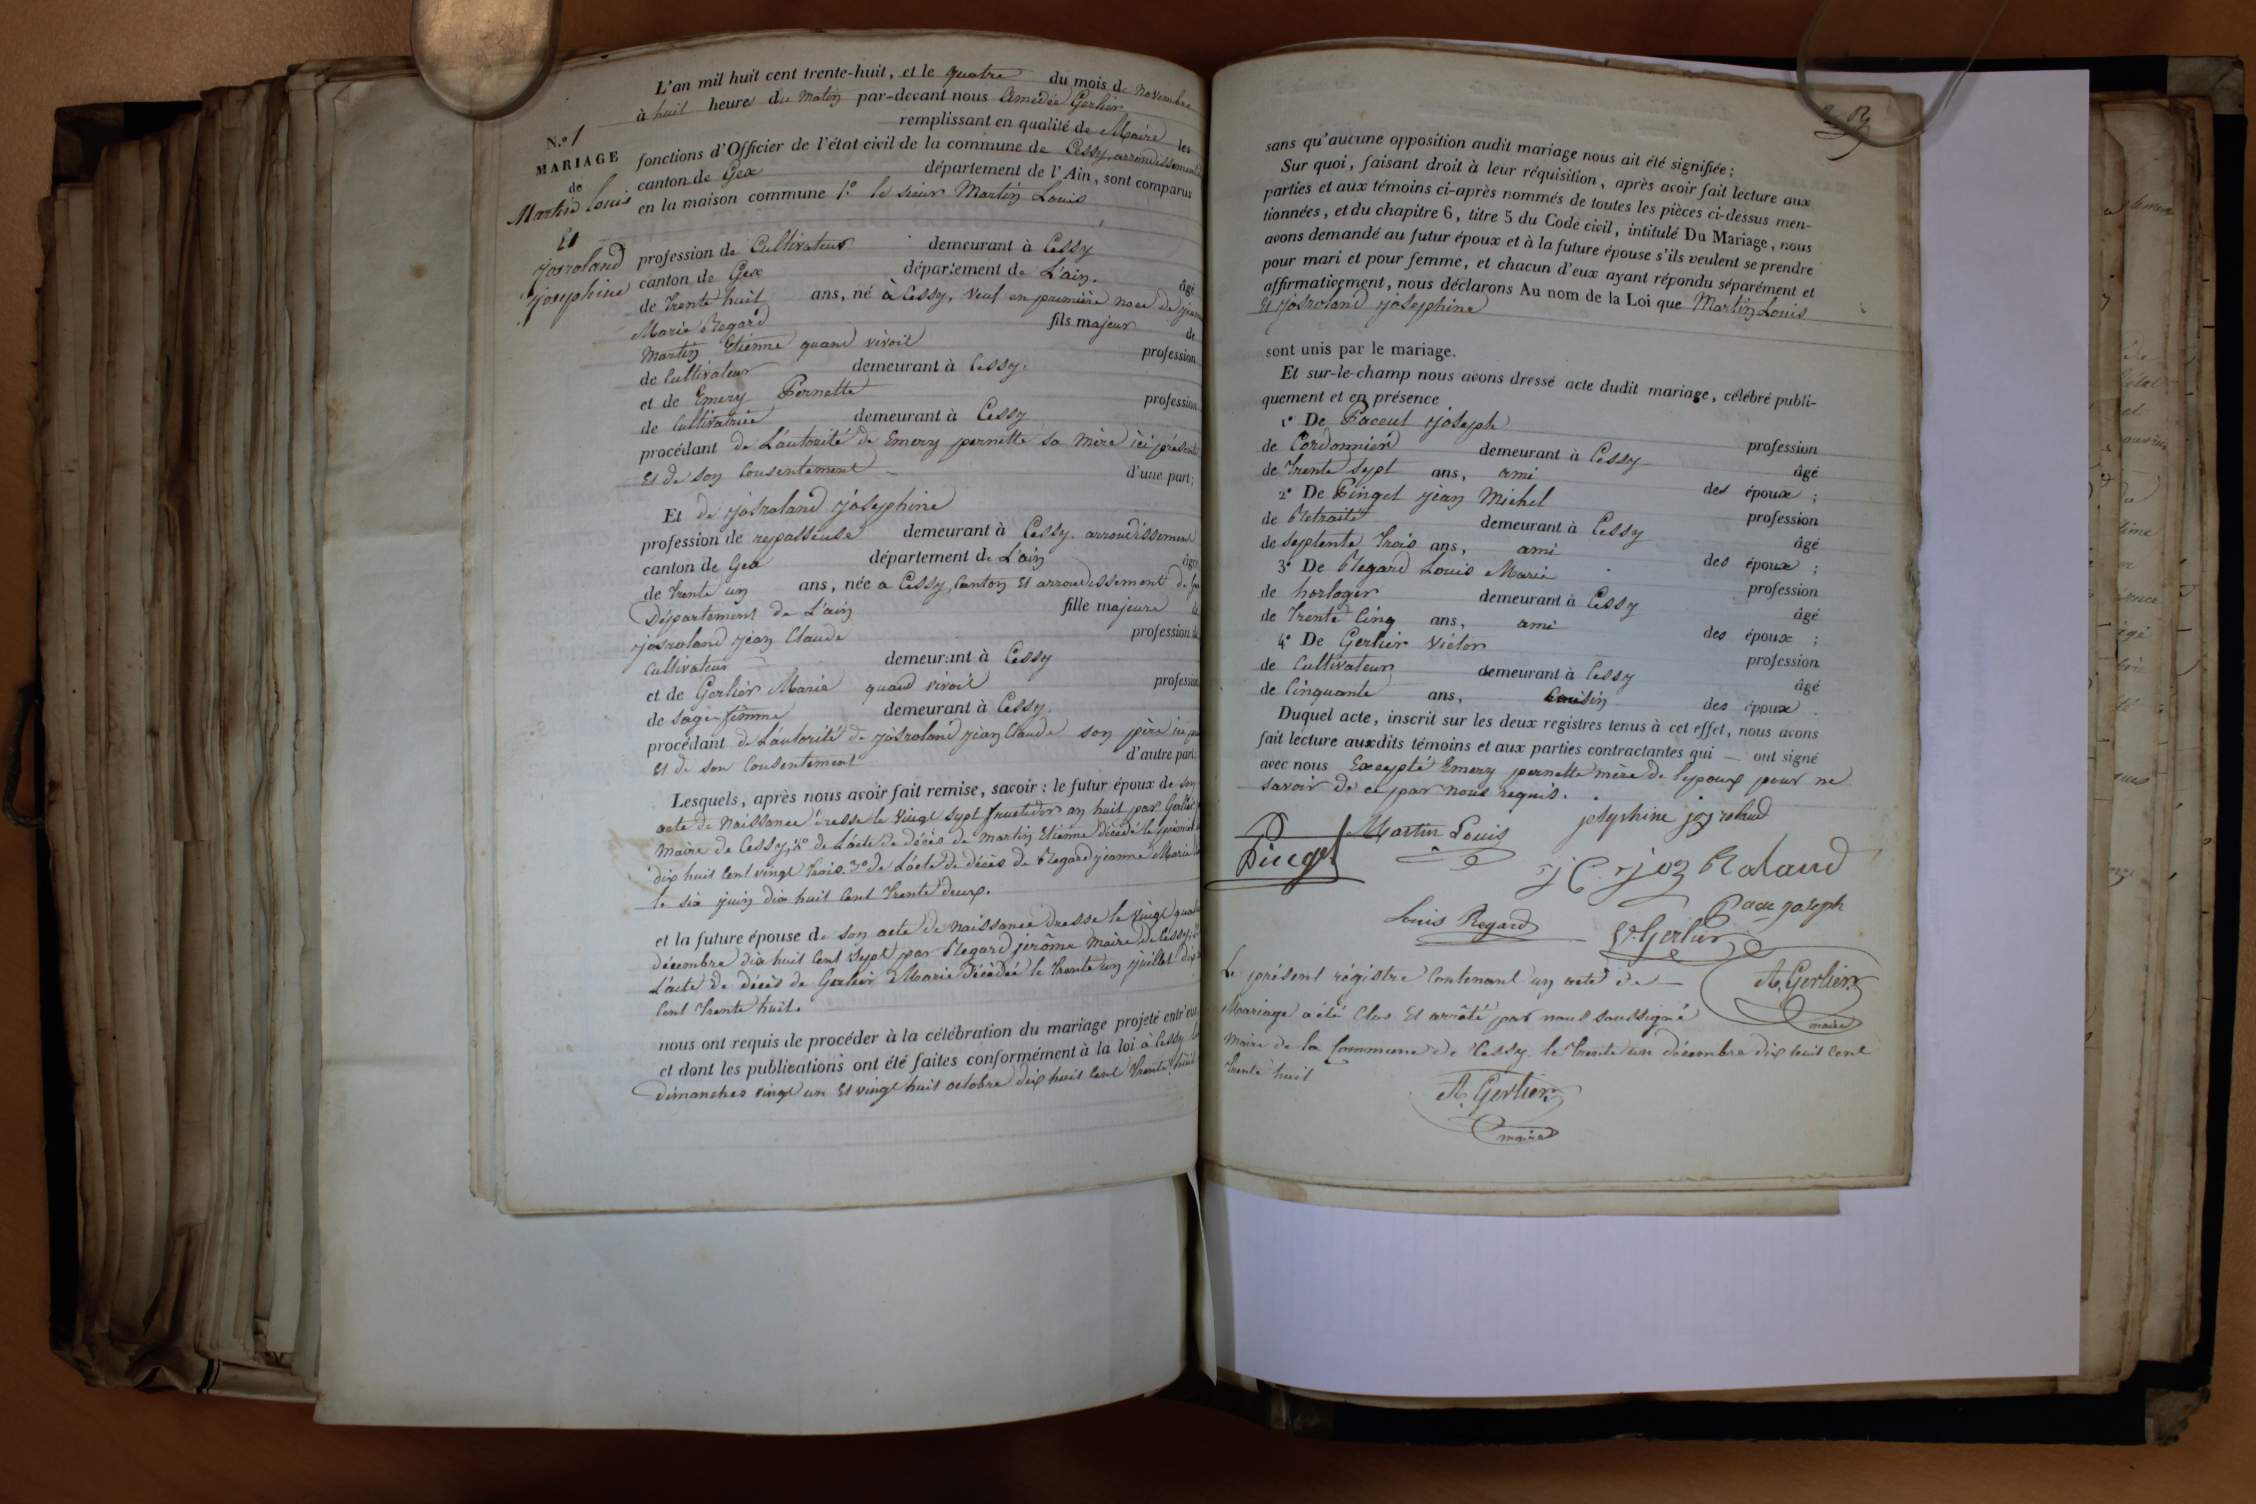 L'an mil huit cent trente-huit, et le quatre du mois de novembre
à huit heure du matin par-devant nous Amédée Gerlier
remplissant en qualité de Maire les
N.º 1
MARIAGE
de
Martin Louis
Et
josroland
josephine
fonctions d'Officier de l'état civil de la commune de Cessy, arrondissement
canton de Gex département de l'Ain, sont comparus
en la maison commune 1º le sieur Martin Louis
profession de Cultivateur demeurant à Cessy
canton de Gex département de L'ain. âgé
de trente huit ans, né à Cessy, veuf en première noce de
Marie Regard fils majeur de
Martin Etienne quand vivoit profession
de Cultivateur demeurant à Cessy.
et de Emery Pernette profession
de Cultivatrice demeurant à Cessy
procédant de L'autorité de Emery pernette sa mère ici présente
Et de son Consentement d'une part;
Et de josroland josephine
profession de repasseuse demeurant à Cessy. arrondissement
canton de Gex département de L'ain âgée
de trente un ans, née a Cessy, Canton Et arrondissement de Gex
Département de L'ain fille majeure de
josroland jean Claude profession de
Cultivateur demeurant à Cessy
et de Gerlier Marie quand vivoit profession
de sage-femme demeurant à Cessy.
procédant de L'autorité de josroland jean Claude son père
Et de son Consentement d'autre part.
Lesquels, après nous avoir fait remise, savoir: le futur époux de son
acte de Naissance dressé le vingt sept fructidor an huit par Gerlier
Maire de Cessy, 2º de L'acte de décès de Martin Etienne décédé le
dix huit Cent vingt trois. 3º de L'acte de décès de Regard jeanne Marie
le six juin dix huit Cent trente deux.
et la future épouse de son acte de Naissance dressé le vingt quatre
décembre dix huit Cent Sept par Regard jerôme Maire de Cessy,
L'acte de décès de Gerlier Marie Décédée le trente un juillet dix
Cent trente huit.
nous ont requis de procéder à la célébration du mariage projeté entr'eux
et dont les publications ont été faites conformément à la loi à Cessy
dimanches vingt un Et vingt huit octobre dix huit Cent trente huit
sans qu'aucune opposition audit mariage nous ait été signifiée;
Sur quoi, faisant droit à leur réquisition, après avoir fait lecture aux
parties et aux témoins ci-après nommés de toutes les pièces ci-dessus men-
tionnées, et du chapitre 6, titre 5 du Code civil, intitulé Du Mariage, nous
avons demandé au futur époux et à la future épouse s'ils veulent se prendre
pour mari et pour femme, et chacun d'eux ayant répondu séparément et
affirmativement, nous déclarons Au nom de la Loi que Martin Louis
Et josroland josephine
sont unis par le mariage.
Et sur-le-champ nous avons dressé acte dudit mariage, célébré publi-
quement et en présence
1º De Paccut joseph profession
de Cordonnier demeurant à Cessy âgé
de trente sept ans, ami des époux;
2º De Pinget jean Michel profession
de Retraité demeurant à Cessy âgé
de septente trois ans, ami des époux;
3º De Regard Louis Marie profession
de horloger demeurant à Cessy âgé
de trente Cinq ans, ami des époux;
4º De Gerlier Victor profession
de Cultivateur demeurant à Cessy âgé
de Cinquante ans, Cousin des époux
Duquel acte, inscrit sur les deux registres tenus à cet effet, nous avons
fait lecture auxdits témoins et aux parties contractantes qui — ont signé
avec nous Excepté Emery pernette mère de lepoux pour ne
savoir de ce par nous requis.
josephine josroland
Martin Louis
Pinget
j C joz Roland
Pacu joseph
Louis Regard
Vr Gerlier
A. Gerlier
maire
Le présent régistre Contenant un acte de —
Mariage a été Clos Et arrêté par nous soussigné
Maire de la Commune de Cessy le trente un décembre dix huit cent
trente huit
A. Gerlier
maire